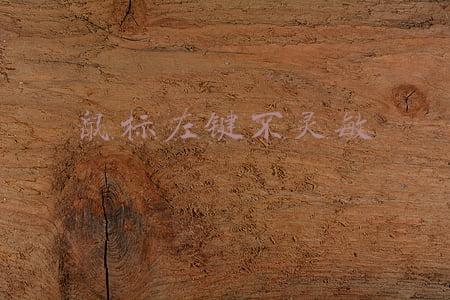 鼠标左键不灵敏